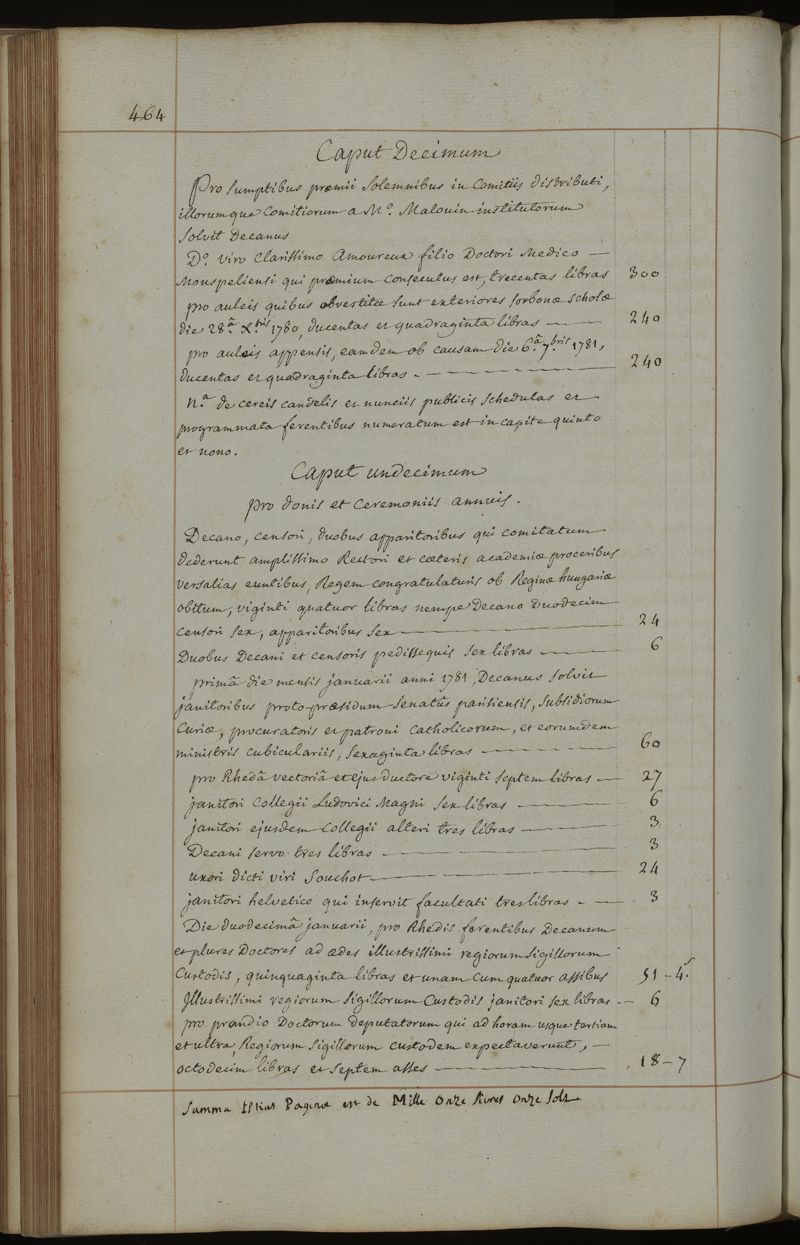 464
Caput Decimum
Pro sumptibus præmii solemnibus in Comitiis distributi,
illorumque Comitiorum a M.º Malouin institutorum
solvit Decanus
D.º viro clarissimo Amoureux filio Doctori Medico —
Monspeliensi qui præmium consecutus est, trecentas libras 300
pro auleis quibus obvestitæ sunt exteriores sorbonæ scholæ
die 28.ª Xbris 1780, ducentas et quadraginta libras — 240
pro auleis appensis, eamdem ob causam die 6.ª 7bris 1781,
ducentas et quadraginta libras. — 240
N.ª de cereis candelis et nunciis publicis schedulas et
programmata ferentibus numeratum est in capite quinto
et nono.
Caput undecimum
pro donis et ceremoniis annuis.
Decano, censori, duobus apparitoribus qui comitatum
dederunt amplissimo Rectori et cæteris academiæ proceribus
versalias euntibus, Regem congratulaturis ob Reginæ hungariæ
obitum, viginti quatuor libras nempe Decano Duodecim
censori sex, apparitoribus sex — 24
Duobus Decani et censoris pedissequis sex libras — 6
primâ die mensis januarii anni 1781, Decanus solvit
janitoribus proto-præsidum senatûs parisiensis, subsidiorum
Curiæ, procuratoris et patroni catholicorum, et eorumdem
ministris cubiculariis, sexaginta libras — 60
pro Rhedâ vectoriâ et ejus ductore viginti septem libras — 27
janitori Collegii Ludovici Magni sex libras — 6
janitori ejusdem Collegii alteri tres libras — 3
Decani servo tres libras — 3
uxori dicti viri Souchot — 24
janitori helvetico qui inservit facultati tres libras. — 3
Die duodecimâ januarii, pro Rhedis ferentibus Decanum
et plures Doctores ad ædes illustrissimi regiorum sigillorum
Custodis, quinquaginta libras et unam cum quatuor assibus 51 – 4.s
Illustrissimi regiorum sigillorum Custodis janitori sex libras — 6
pro prandio Doctorum deputatorum qui ad horam usque tertiam
et ultra, Regiorum sigillorum custodem expectaverunt, —
octodecim libras et septem asses — 18 – 7
Summa istius Paginæ est de Mille Onze livres Onze sols